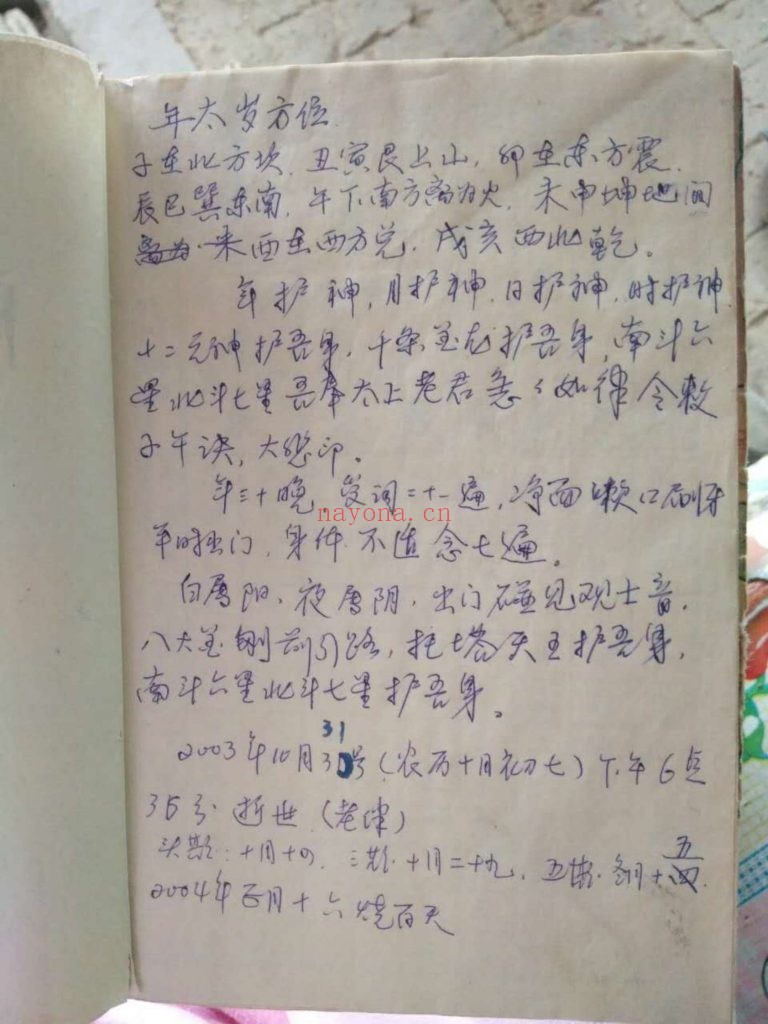 年太岁方位
子在北方坎．丑寅艮上山，卯在东方震．
辰巳巽东南，午下南方离为火．未申坤地
酉在西方兑．戌亥西北乾。
年护神，月护神，日护神，时护神
十二元神护吾身．十条金龙护吾身，南斗六
星北斗七星吾奉太上老君急急如律令敕
子午诀，大 印。
年三十晚，二十一遍，净面漱口刷牙
平时出门．身体不适念七遍。
白属阳．夜属阴．出门碰见观士音．
八大金刚前引路，托塔天王护吾身，
南斗六星北斗七星护吾身。
31
2003年10月30号（农历十月初七）下午6点
35分逝世（老
头期：十月十四．三期．十月二十九，五期．十五
2004年正月十六烧百天
nayona.cn